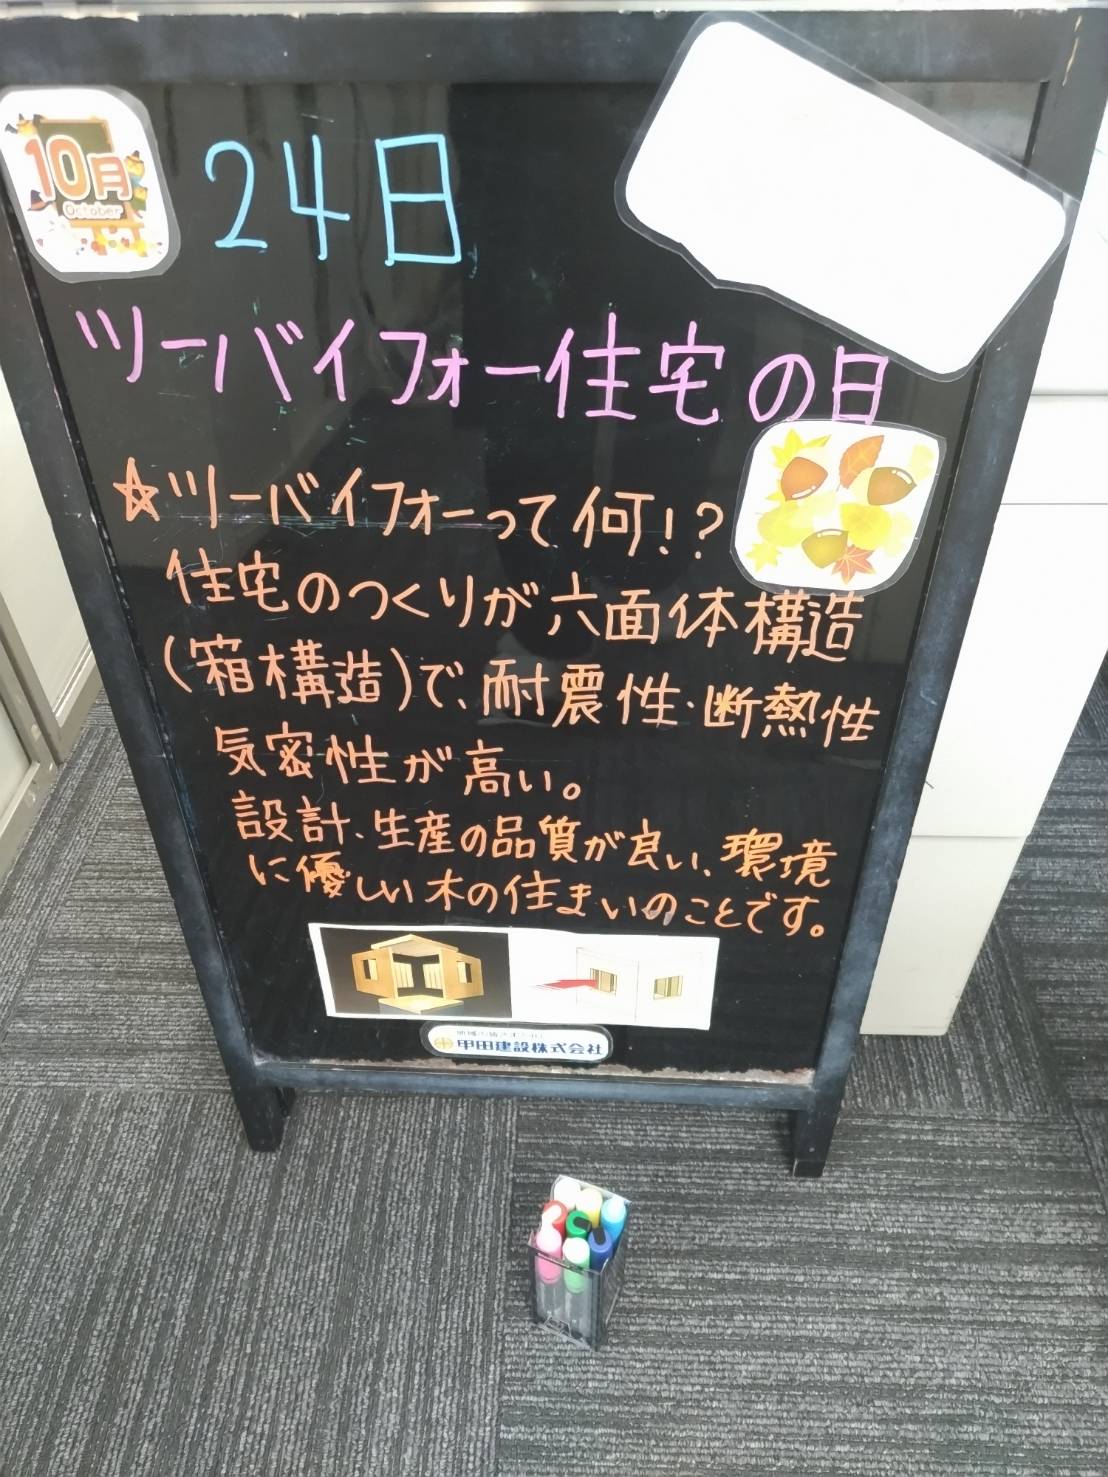 10月
October
24日
ツーバイフォー住宅の日
☆ツーバイフォーって何!?
住宅のつくりが六面体構造
(箱構造)で、耐震性・断熱性
気密性が高い。
設計、生産の品質が良い、環境
に優しい木の住まいのことです。
甲田建設株式会社